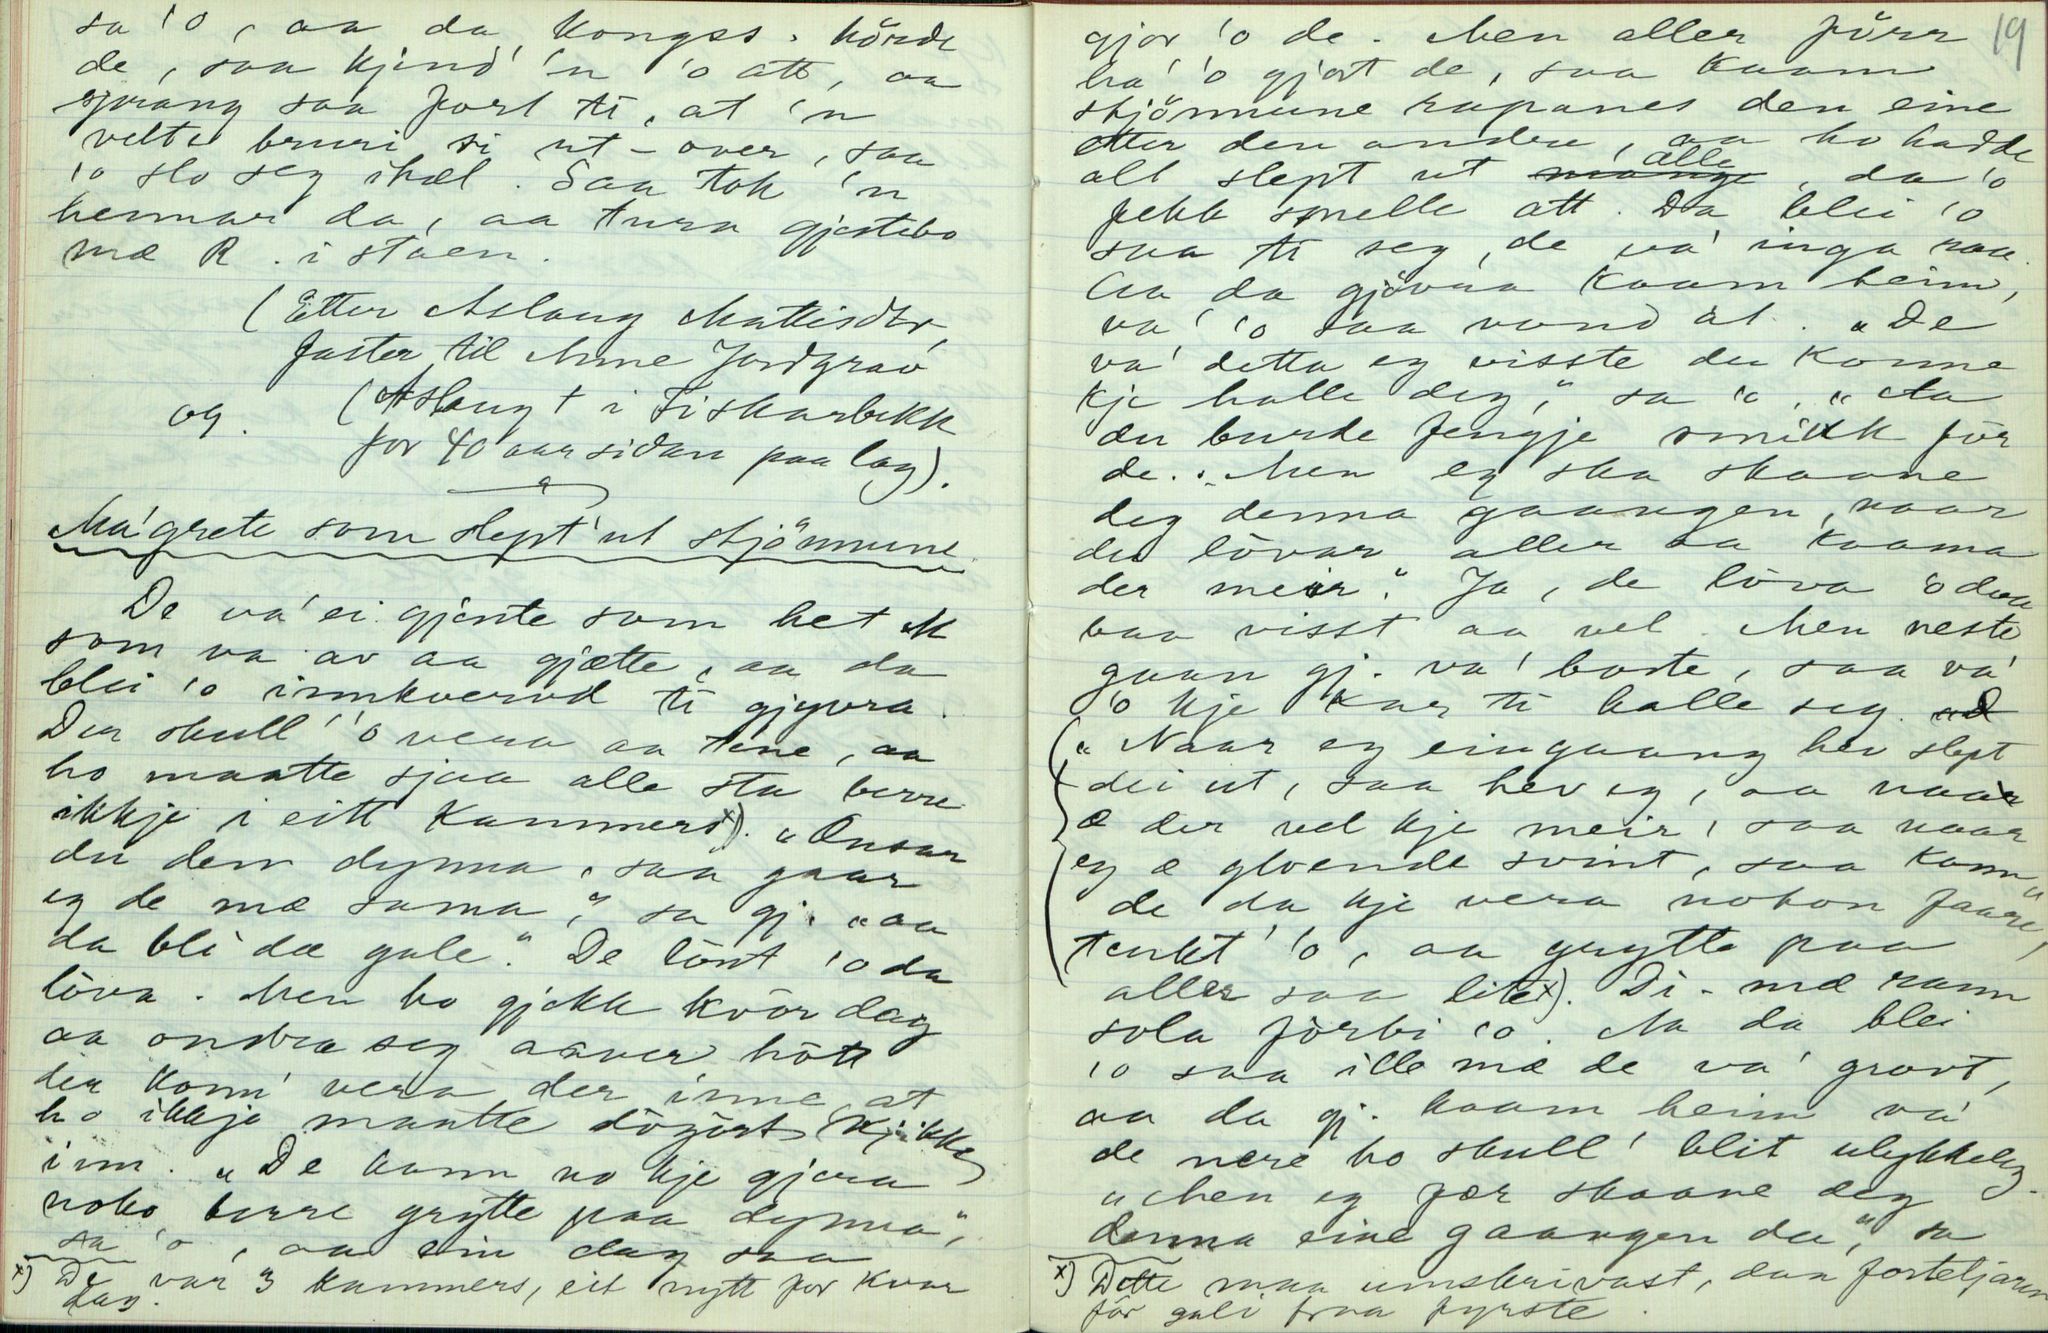 sa 'o, aa da kongss. hörde
de, saa kjend' 'n 'o att, aa
sprang saa fort ti, at 'n
velte bruri si ut-over, saa
'o slo seg ihæl. Saa tok 'n
hennar da, aa tura gjestebo
mæ R. i staen.
(Etter Aslaug Mattisdtr,
faster til Anne Jordgrav
og (Aslaug + i Fiskarbekk
for 40 aar sidan paa lag).
Ma'grete som slept' ut stjönnune
De va' ei gjente som het M
som va av aa gjætte, aa da
blei 'o innkvervd ti gjyvra.
Der skull' 'o vera aa tene, aa
ho maatte sjaa alle sta berre
ikkje i eitt kammers x). "Ansar
du den dynna, saa gaar
eg de mæ sama," sa gj. "aa
da bli dæ gale." De löut 'o da
löva. Men ho gjekk kvör dag
aa ondra seg aaver hött
der konn' vera der inne, at
ho ikkje maatte dögört kjikke
inn. "De kann no kje gjera
noko, berre grytte paa dynna",
sa 'o, aa ein dag saa
x) De var 3 kammers, eit nytt for kvar
dag.
19
gjor 'o de. Men aller förr
ha' 'o gjort de, saa kaam
stjönnune rapanes den eine
etter den andre, aa ho hadde
alt slept ut mange alle, da 'o
fekk smelle att. Da blei 'o
saa ti seg, de va' inga raa.
Aa da gjövra kaam heim,
va' 'o saa vond at. "De
va' detta eg visste du konne
kje halle deg," sa 'o, "Aa
du burde fengje smikk för
de. Men eg ska skaane
deg denna gaangen, naar
du lövar aller aa kaama
der meir." Ja, de löva 'o daa
baa visst aa vel. Men neste
gaan gj. va' borte, saa va'
'o kje kar ti halle seg.
"Naar eg eingaang hev slept
dei ut, saa hev eg, aa naar
æ der vel kje meir, saa naar
eg æ gloende svint, saa kann
de da kje vera nokon faare,"
tenkt' 'o, aa grytte paa
aller saa lite x). Di-mæ rann
sola förbi 'o. Aa da blei
'o saa ille mæ de va' grovt,
aa da gj. kaam heim va'
de nere ho skull' blit ulykkeleg.
"Men eg fær skaane deg
denna eine gaangen du," sa
x) Dette maa umskrivast, daa forteljaren
för gali fraa fyrste.